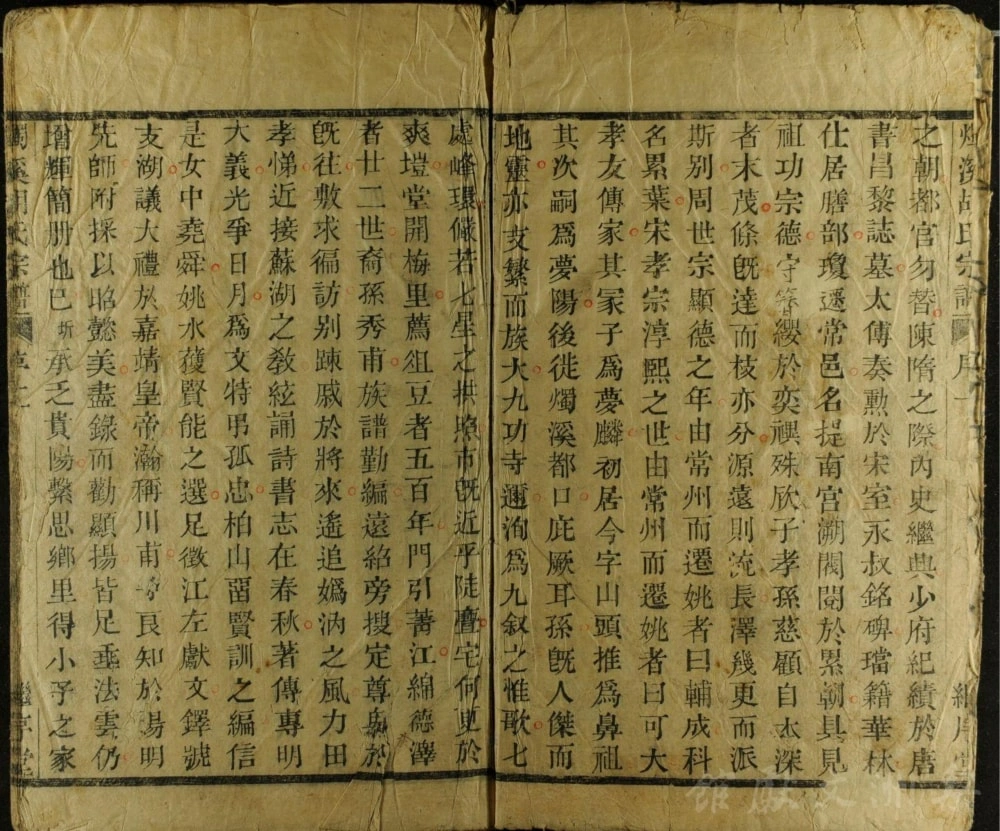 燭溪胡氏宗譜 序一
之朝都官勿替陳隋之際內史繼興少府紀績於唐
書昌黎誌墓太傅奏勳於宋室永叔銘碑璫籍華林
仕居膳部瓊遷常邑名提南宮溯閥閱於累朝具見
祖功宗德守簪纓於奕禩殊欣子孝孫慈顧自太深
者末茂條既達而枝亦分源遠則流長澤幾更而派
斯別周世宗顯德之年由常州而遷姚者曰輔成科
名累葉宋孝宗淳熙之世由常州而遷姚者曰可大
孝友傳家其冢子為夢麟初居今字山頭推為鼻祖
其次嗣為夢陽後徙燭溪都口庇厥耳孫既人傑而
地靈亦支繁而族大九功寺邇洵為九叙之惟歌七
處峰環儼若七星之拱照市既近乎陡亹宅何更於
爽塏堂開梅里薦俎豆者五百年門引菁江綿德澤
者廿二世裔孫秀甫族譜勤編遠紹旁搜定尊卑於
既往敷求徧訪別踈戚於將來遙追媯汭之風力田
孝悌近接蘇湖之教絃誦詩書志在春秋著傳專明
大義光爭日月為文特弔孤忠柏山畱賢訓之編信
是女中堯舜姚水獲賢能之選足徵江左獻文鐸號
支湖議大禮於嘉靖皇帝瀚稱川甫 良知於陽明
先師附採以昭懿美盡錄而勸顯揚皆足垂法雲仍
增輝簡册也已 圻 承乏貴陽繫思鄉里得小阮之家
燭溪胡氏宗譜 序二 繩序堂